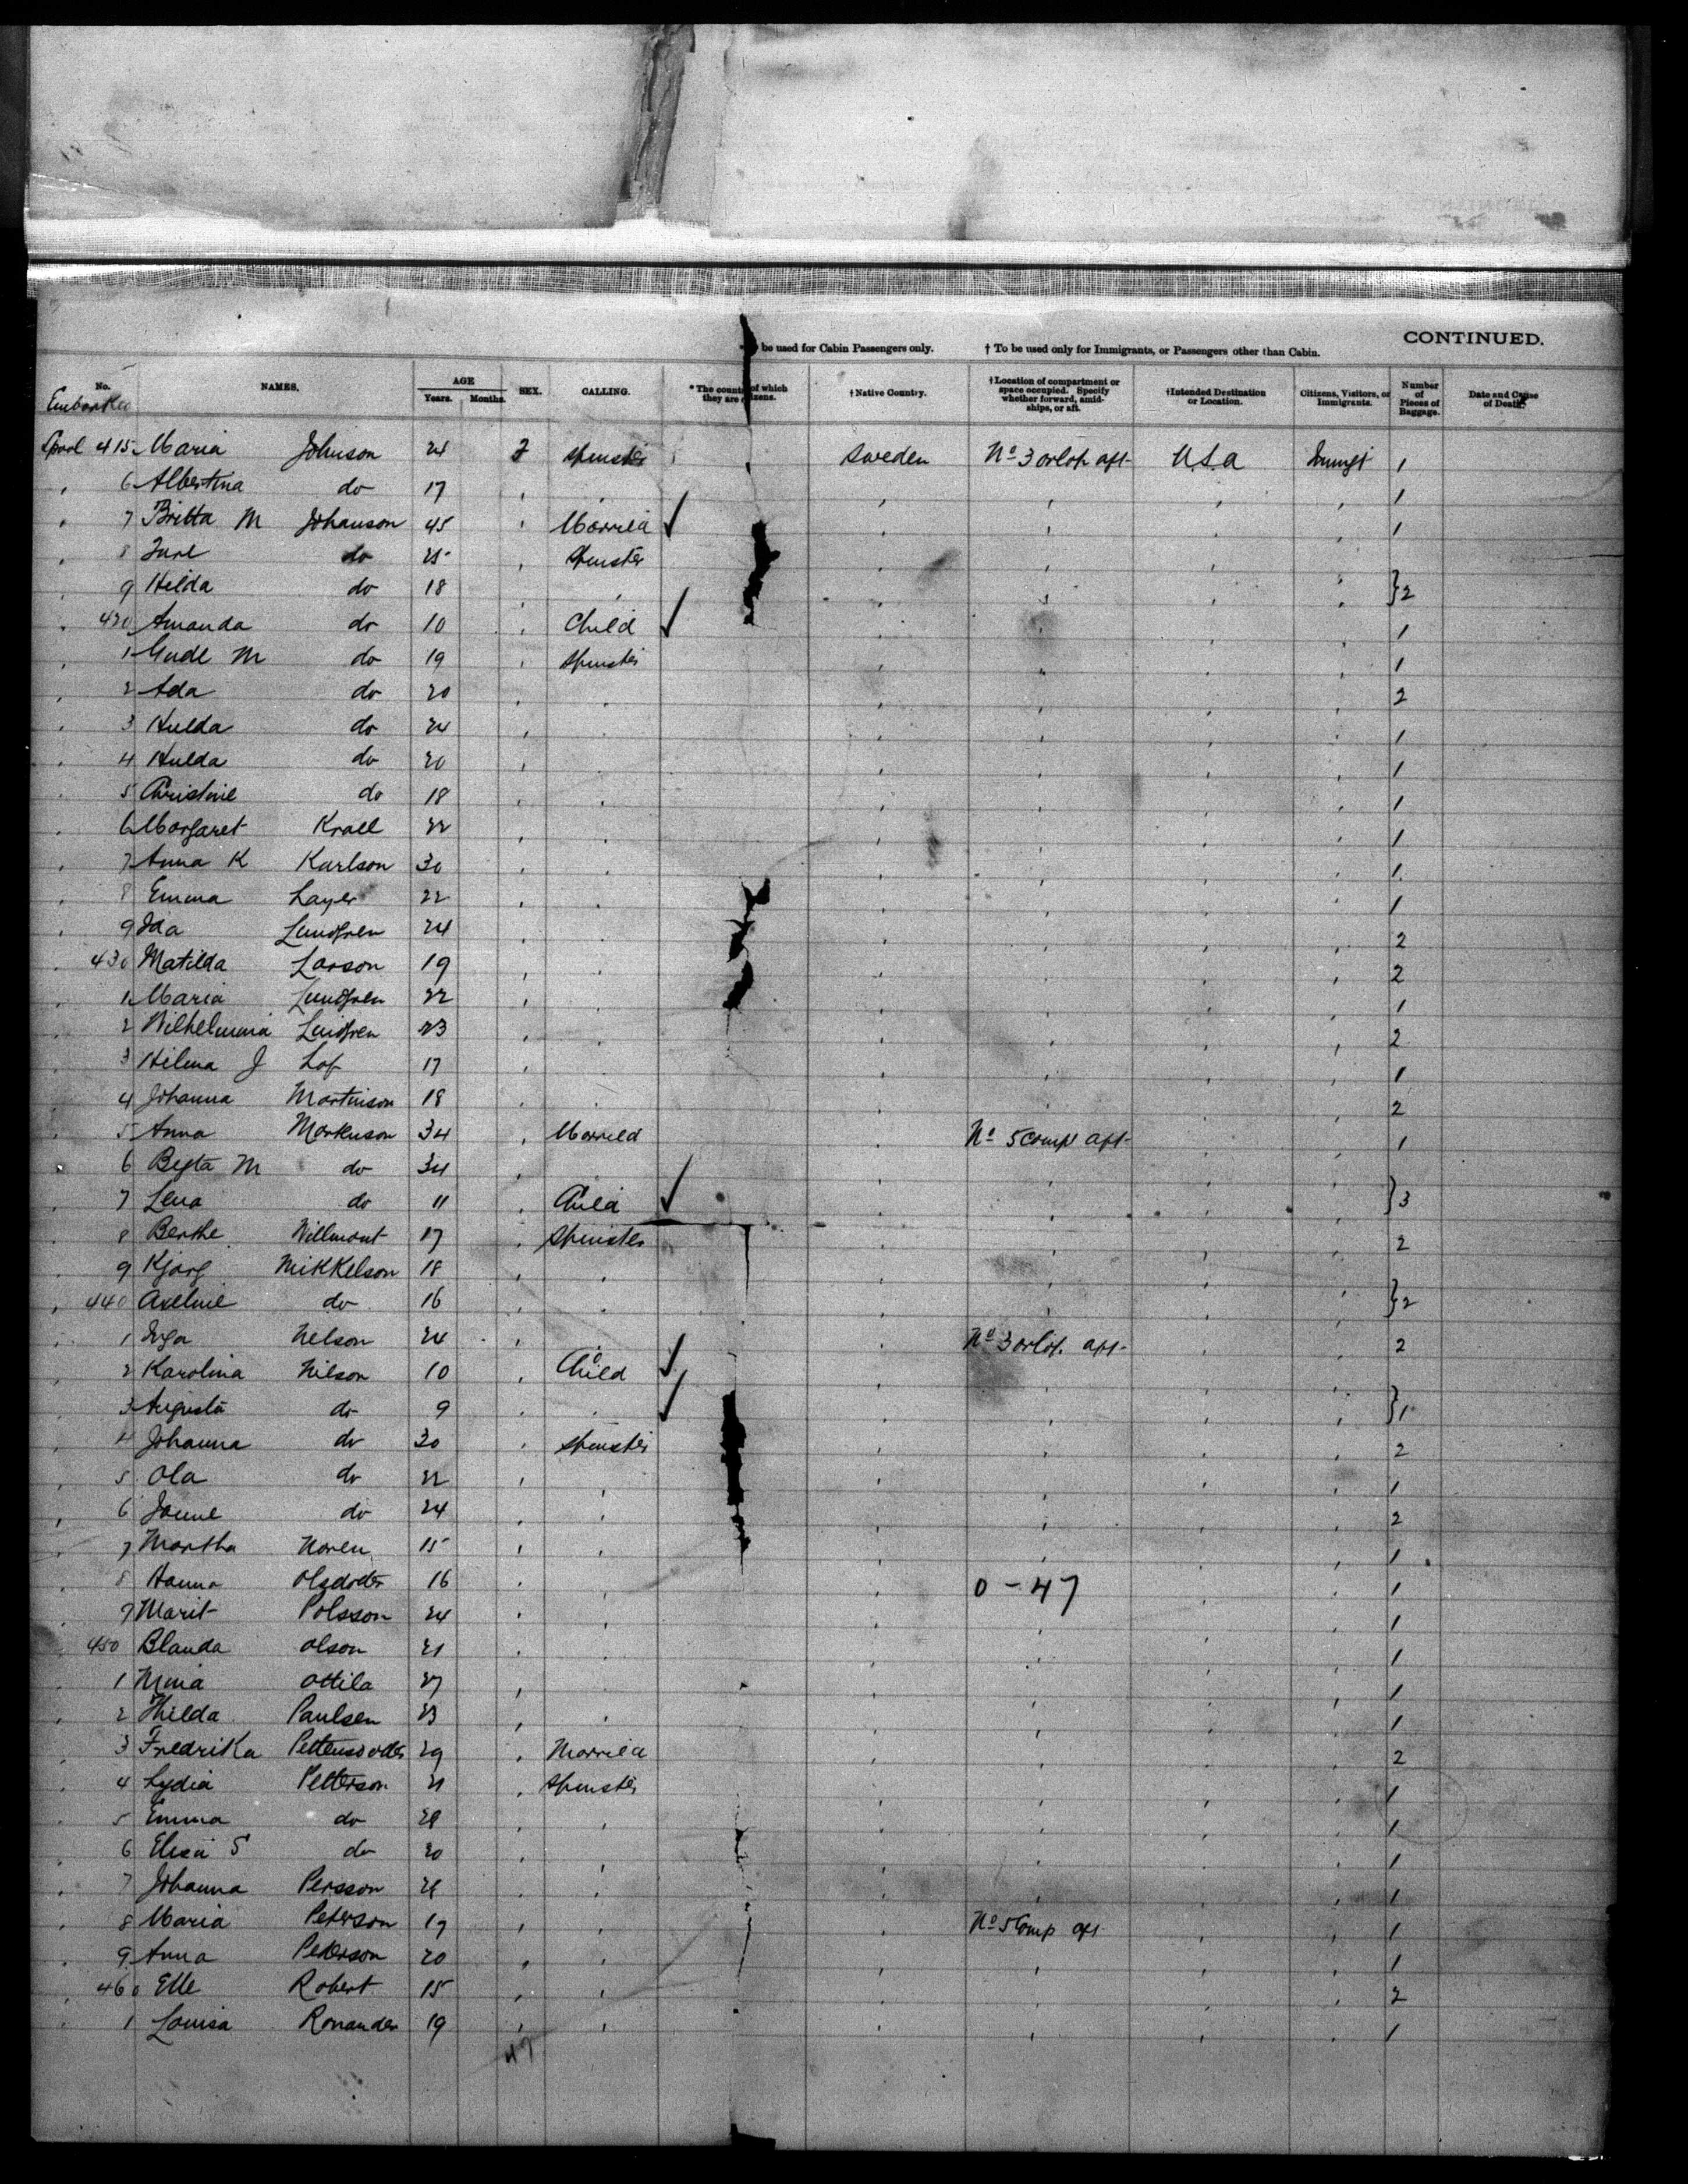 CONTINUED.
* To be used for Cabin Passengers only. † To be used only for Immigrants, or Passengers other than Cabin.
No. NAMES. AGE Years. Months. SEX. CALLING. * The country of which they are citizens. † Native Country. † Location of compartment or space occupied. Specify whether forward, amidships, or aft. † Intended Destination or Location. Citizens, Visitors, or Immigrants. Number of Pieces of Baggage. Date and Cause of Death.
Embarked
415 Maria Johnson 24 F Spinster Sweden No 3 orlop aft U.S.a 1
6 Albertina do 17 " " " " " " 1
7 Britta M Johanson 45 " Married ✓ " " " " 1
8 do 25 " Spinster " " " "
9 Hilda do 18 " " " " " " }2
420 Amanda do 10 " Child ✓ " " " " 1
1 M do 19 " Spinster " " " " 1
2 Ada do 20 " " " " " " 2
3 Hulda do 24 " " " " " " 1
4 Hulda do 20 " " " " " " 1
5 Christine do 18 " " " " " " 1
6 Margaret Krall 22 " " " " " " 1
7 Anna K Karlson 30 " " " " " " 1
8 Emma 22 " " " " " " 1
9 Ida Lundgren 24 " " " " " " 2
430 Matilda Larson 19 " " " " " " 2
1 Maria Lundgren 22 " " " " " " 1
2 Wilhelmina 23 " " " " " " 2
3 Hilma J Lof 17 " " " " " " 1
4 Johanna Martinson 18 " " " " " " 2
5 Anna Markuson 34 " Married " No 5 Comp aft " " 1
6 M do 34 " " " " " "
7 Lena do 11 " Child ✓ " " " " }3
8 Berthe Willmont 17 " Spinster " " " " 2
9 Mikkelson 18 " " " " " "
440 Axeline do 16 " " " " " " }2
1 Inga Nelson 24 " " " No 3 orlop. aft " " 2
2 Karolina Nilson 10 " Child ✓ " " " "
3 Augusta do 9 " " ✓ " " " " }1
4 Johanna do 30 " Spinster " " " " 2
5 Ola do 22 " " " " " " 1
6 do 24 " " " " " " 2
7 Martha Noren 15 " " " " " " 1
8 Hanna Olsdoter 16 " " " 0-47 " " 1
9 Marit Polsson 24 " " " " " " 1
450 Blanda Olson 21 " " " " " " 1
1 Mina Ottila 27 " " " " " " 1
2 Thilda Paulsen 23 " " " " " " 1
3 Fredrika 29 " Married " " " " 2
4 Lydia Petterson 21 " Spinster " " " " 1
5 Emma do 28 " " " " " " 1
6 Elisa S do 20 " " " " " " 1
7 Johanna Persson 28 " " " " " " 1
8 Maria Peterson 17 " " " No 5 Comp aft " " 1
9 Anna Pederson 20 " " " " " " 1
460 Elle Robert 15 " " " " " " 2
1 Louisa Ronander 19 " " " " " " 1
47